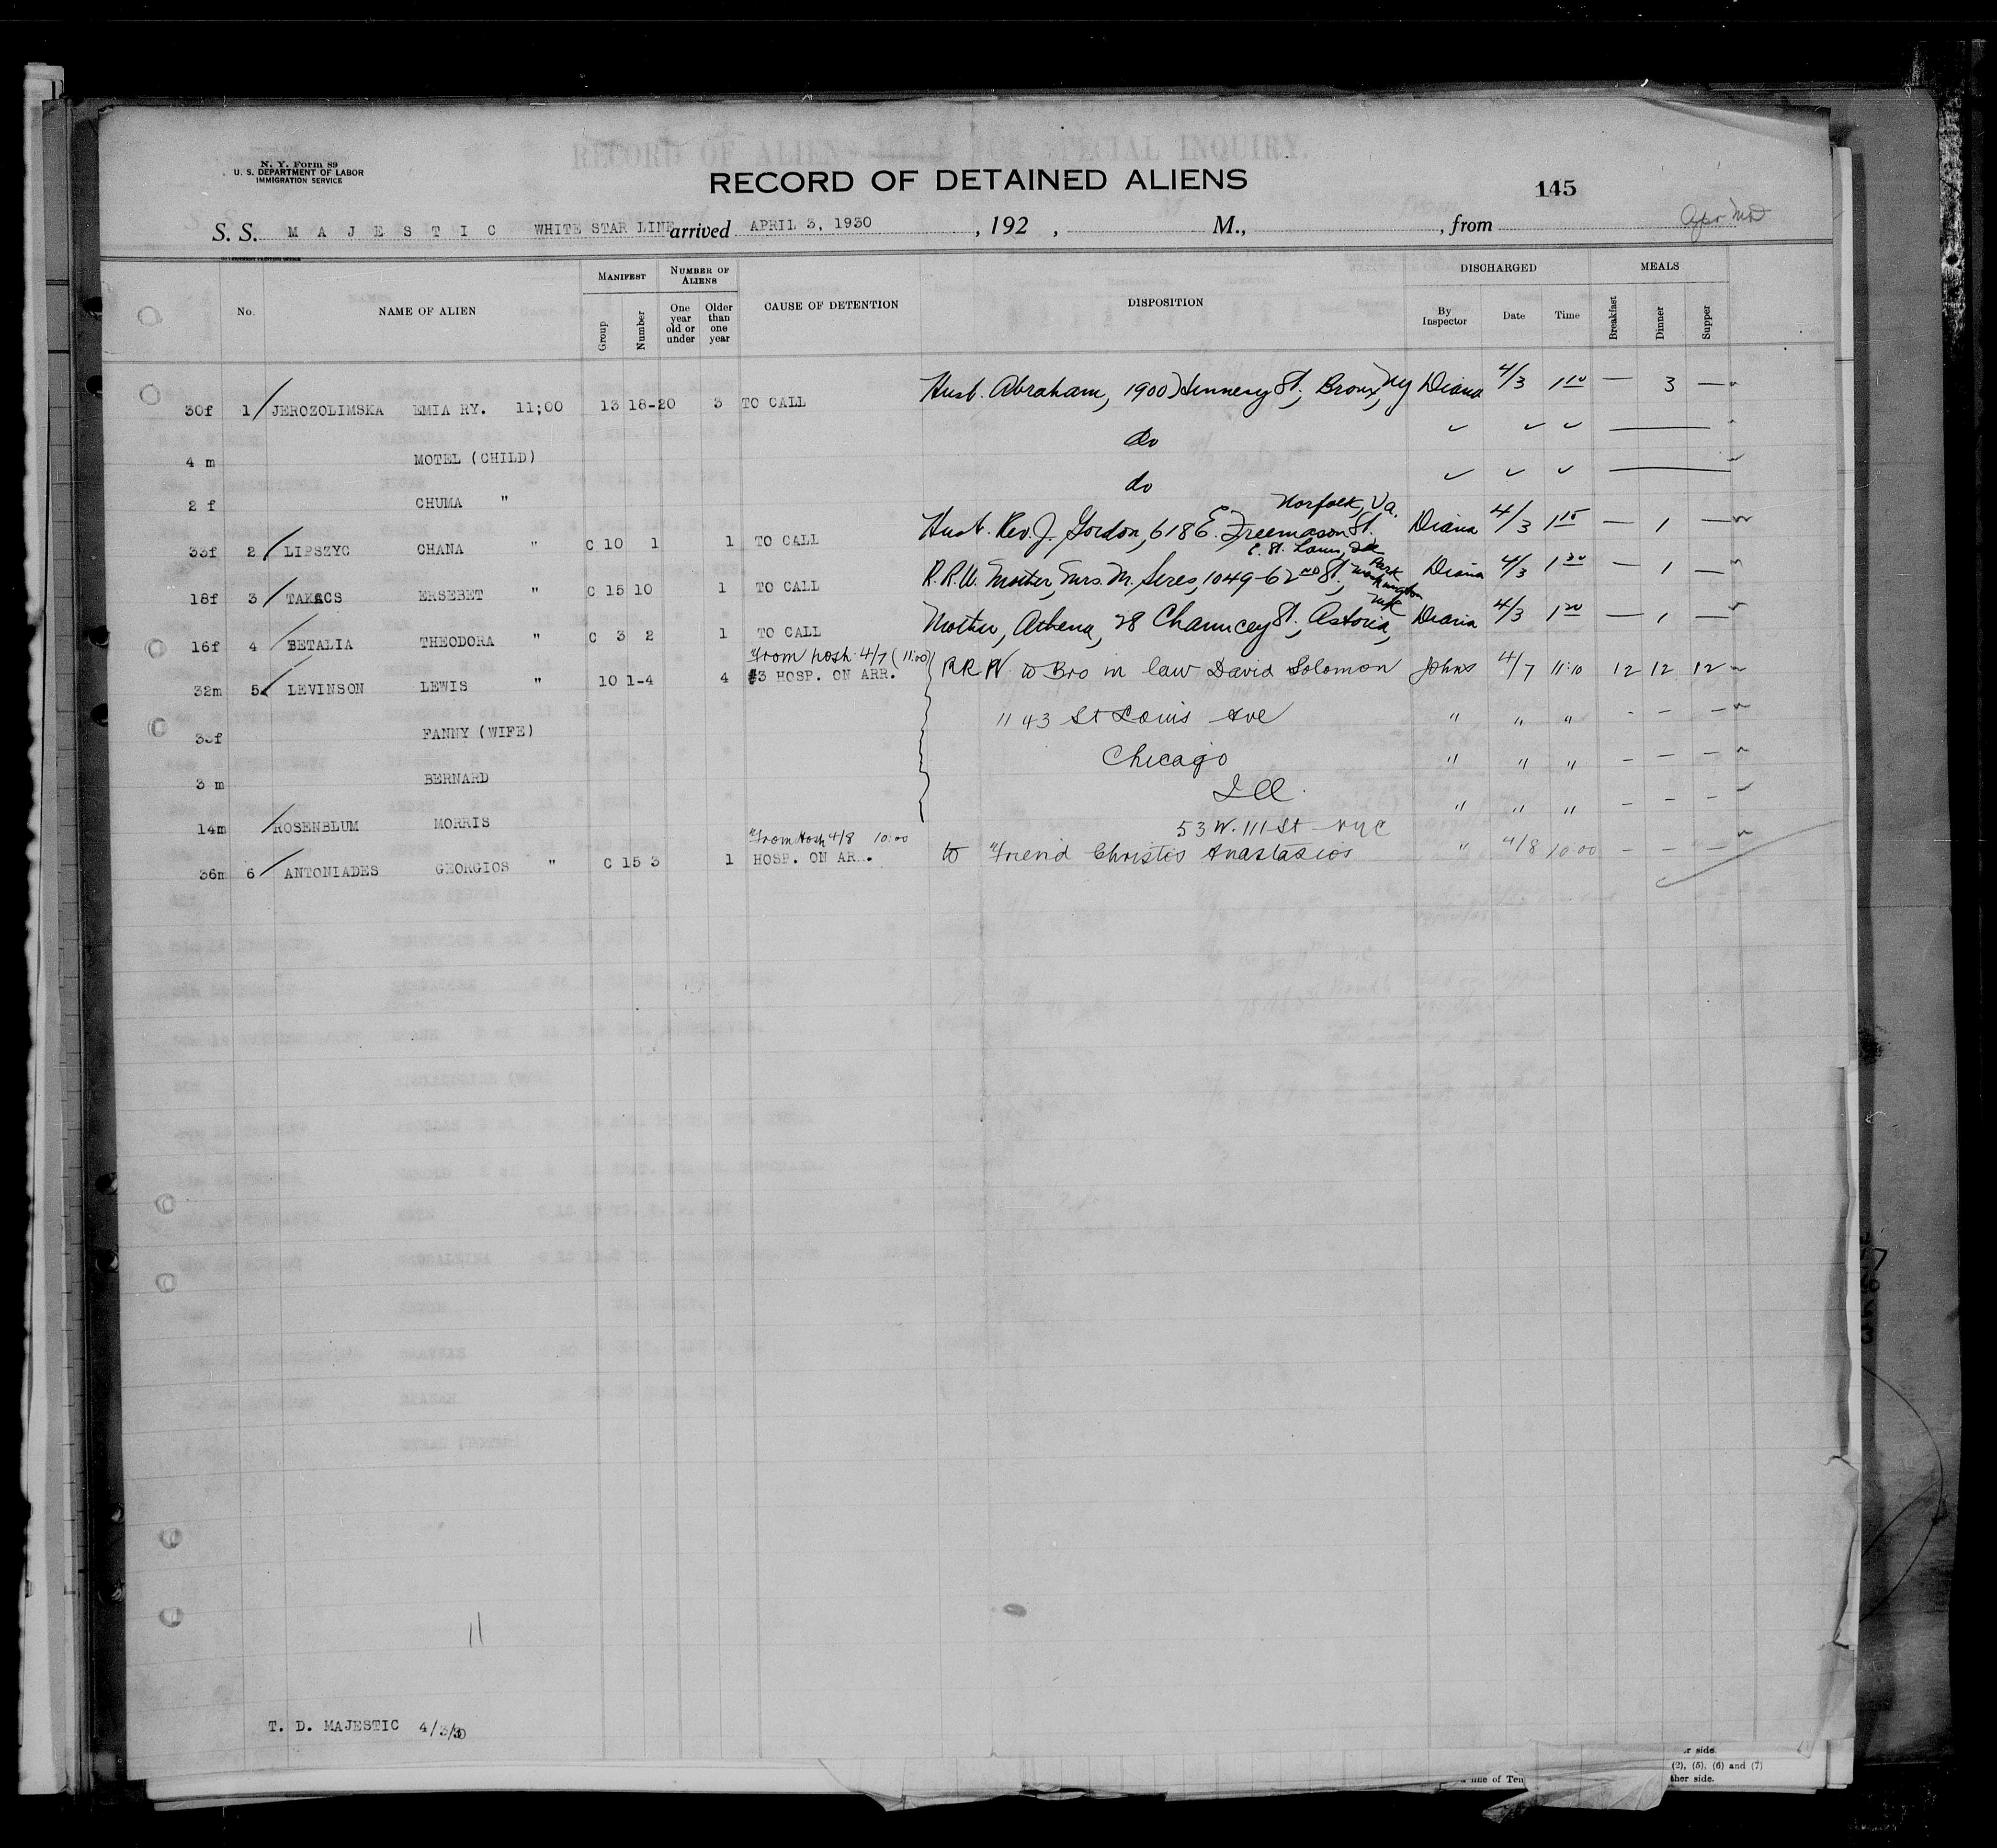 N. Y. Form 89
U. S. DEPARTMENT OF LABOR
IMMIGRATION SERVICE
RECORD OF ALIENS HELD FOR SPECIAL INQUIRY.
RECORD OF DETAINED ALIENS
145
S. S. M A J E S T I C WHITE STAR LINE arrived APRIL 3, 1930, 192 , M., , from
No. NAME OF ALIEN MANIFEST Group Number NUMBER OF ALIENS One year old or under Older than one year CAUSE OF DETENTION DISPOSITION DISCHARGED By Inspector Date Time MEALS Breakfast Dinner Supper
30f 1 / JEROZOLIMSKA EMIA RY. 11;00 13 18-20 3 TO CALL Husb. Abraham, 1900 Hennesy St., Bronx, NY Diana 4/3 1 10 — 3 —
4 m MOTEL (CHILD) do ✓ ✓ ✓ —
2 f CHUMA " do ✓ ✓ ✓ —
Norfolk, Va.
33f 2 / LIPSZYC CHANA " C 10 1 1 TO CALL Husb. Rev. J. Gordon, 618 E. Freemason St. Diana 4/3 1 15 — 1 —
E. St. Louis, Ill
18f 3 / TAKACS ERSEBET " C 15 10 1 TO CALL R.R.W. Mother, Mrs. M. Seres, 1049-62nd St., Washington Park Diana 4/3 1 30 — 1 —
16f 4 / BETALIA THEODORA " C 3 2 1 TO CALL Mother, Athena, 28 Chauncey St., Astoria, Diana 4/3 1 20 — 1 —
From hosp. 4/7 (11:00)
32m 5 / LEVINSON LEWIS " 10 1-4 4 #3 HOSP. ON ARR. RRW to Bro in law David Solomon Johns 4/7 11:10 12 12 12
33f FANNY (WIFE) 1143 St Louis Ave " " " - - -
3 m BERNARD Chicago " " " - - -
Ill. " " " - - -
14m / ROSENBLUM MORRIS 53 W. 111 St NYC
From Hosp 4/8 10:00
36m 6 / ANTONIADES GEORGIOS " C 15 3 1 HOSP. ON AR . to Friend Christos Anastasios " 4/8 10:00 - - -
11
T. D. MAJESTIC 4/3/30
r side.
(2), (5), (6) and (7)
line of Ten
ther side.